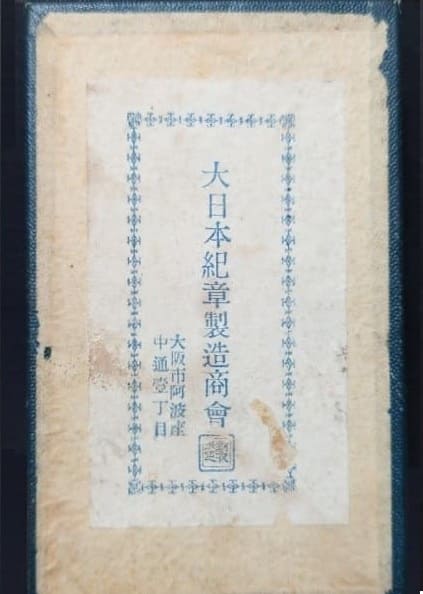 大日本紀章製造商會
大阪市阿波座
中通壹丁目